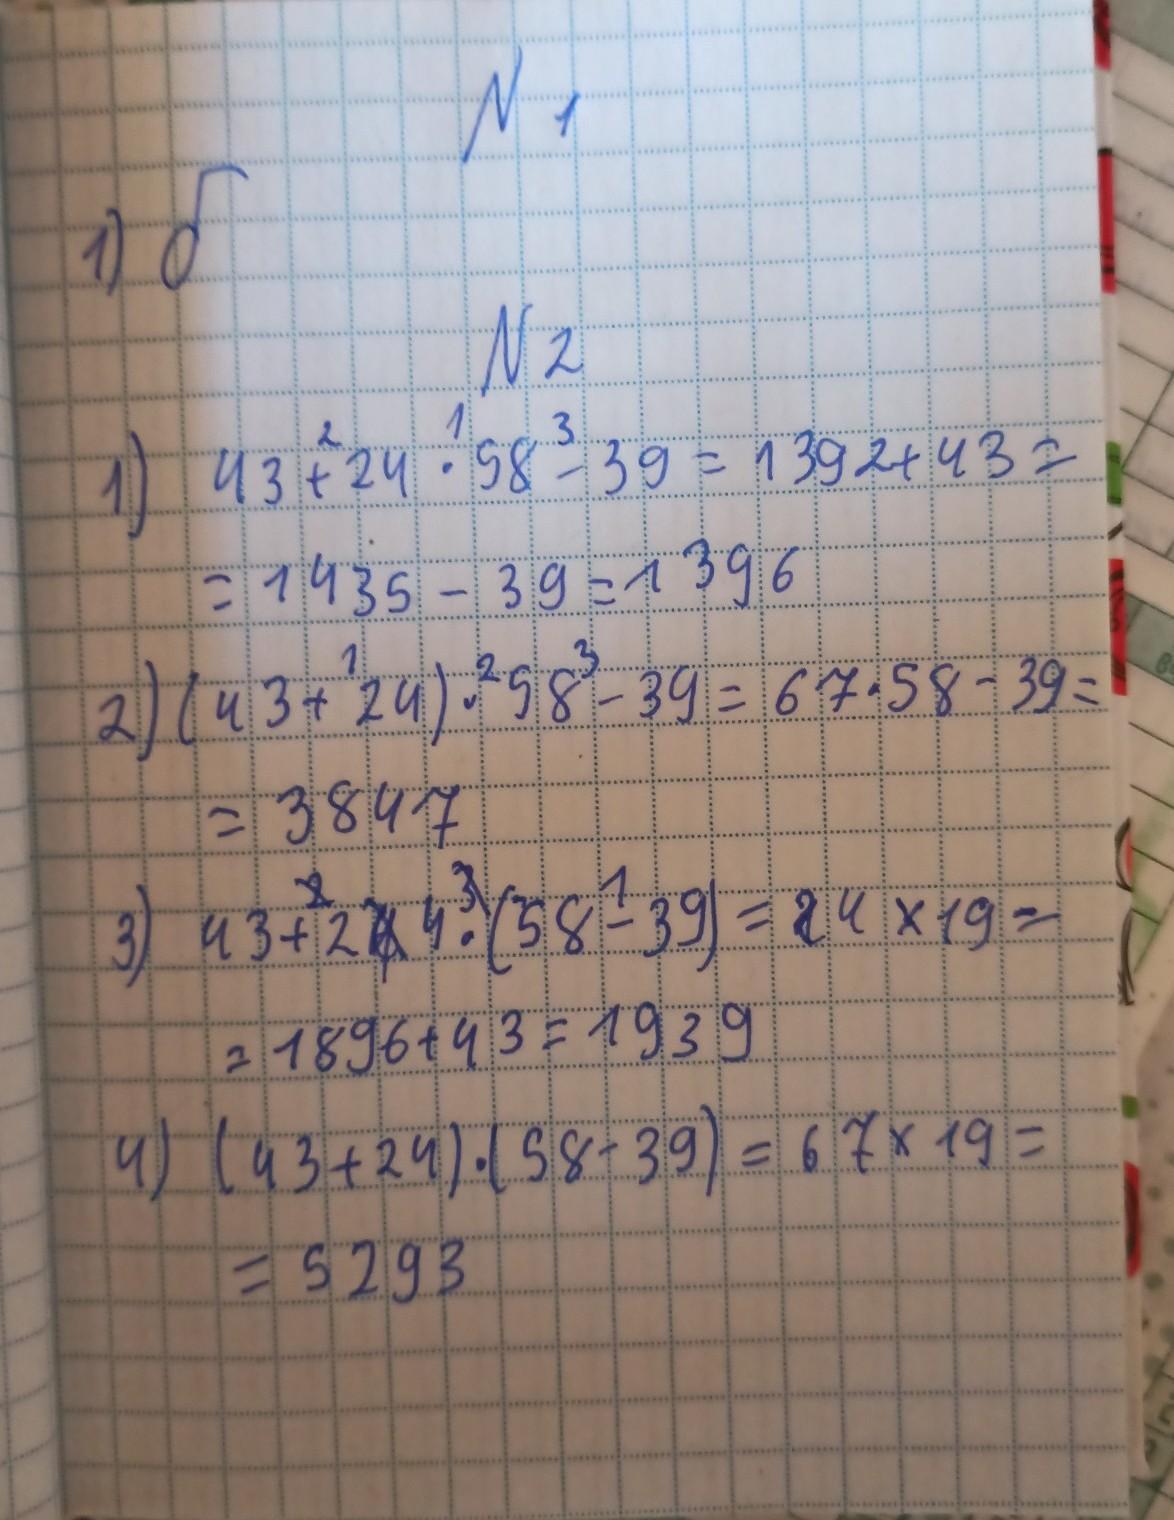 N 1
1) б
N 2
1) 43 +² 24 ·¹ 58 -³ 39 = 1392 + 43 =
= 1435 - 39 = 1396
2) (43 +¹ 24) ·² 58 -³ 39 = 67 · 58 - 39 =
= 3847
3) 43 +² 24 ·³ (58 -¹ 39) = 24 × 19 =
= 1896 + 43 = 1939
4) (43 + 24) · (58 - 39) = 67 × 19 =
= 5293